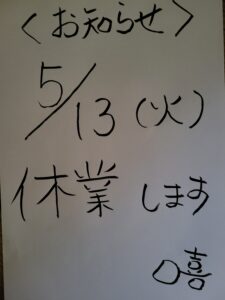 〈お知らせ〉
5/13(火)
休業します
〇喜